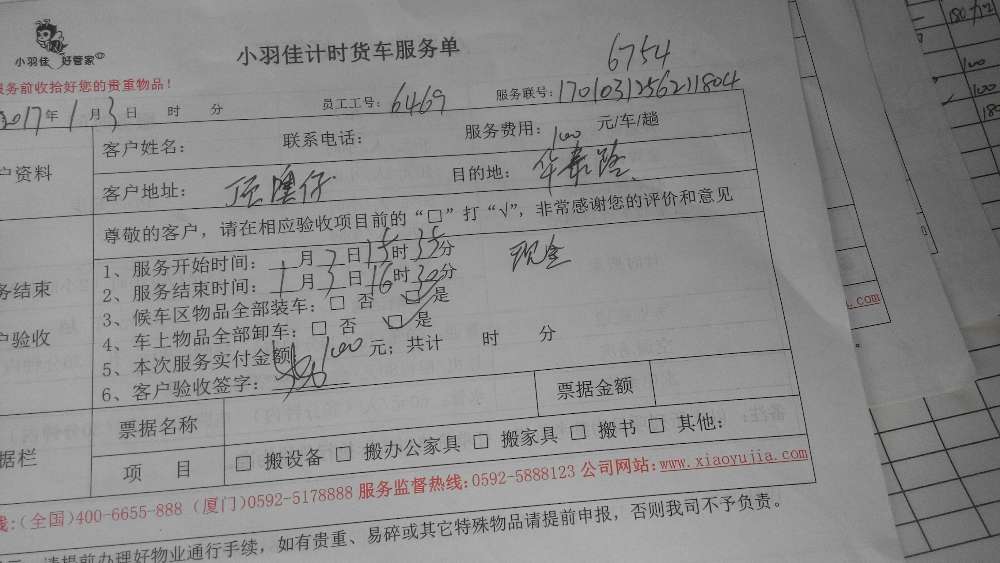 小羽佳 好管家
小羽佳计时货车服务单
6754
服务前收拾好您的贵重物品！
2017年1月3日 时 分 员工工号：6469 服务联号：
客户姓名： 联系电话： 服务费用：100 元/车/趟
户资料
客户地址： 顶澳仔 目的地： 华泰路
尊敬的客户，请在相应验收项目前的“□”打“√”，非常感谢您的评价和意见
1、服务开始时间：1月3日15时35分 现金
2、服务结束时间：1月3日16时30分
务结束
3、候车区物品全部装车：□ 否 ☑ 是
户验收
4、车上物品全部卸车：□ 否 ☑ 是
5、本次服务实付金额 100 元；共计 时 分
6、客户验收签字：
票据名称 票据金额
据栏
项 目 □ 搬设备 □ 搬办公家具 □ 搬家具 □ 搬书 □ 其他：
线:(全国)400-6655-888 (厦门)0592-5178888 服务监督热线:0592-5888123 公司网站:www.xiaoyujia.com
请提前办理好物业通行手续，如有贵重、易碎或其它特殊物品请提前申报，否则我司不予负责。
100
100
.com